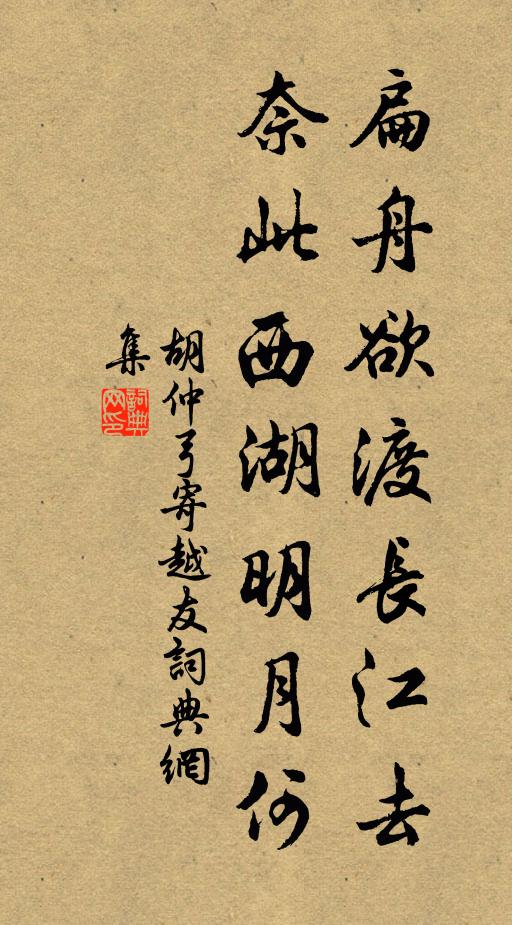 扁舟欲渡長江去
奈此西湖明月何
胡仲弓寄越友詞典網
集
詞典
网印